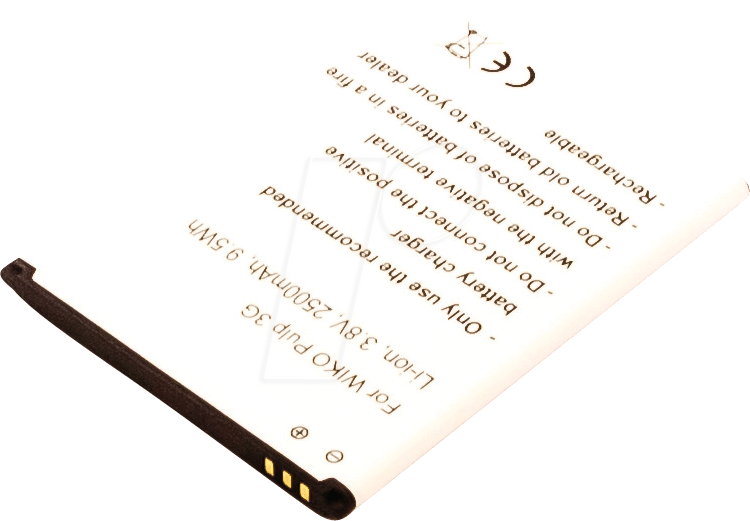 For WIKO Pulp 3G
Li-ion, 3.8V, 2500mAh, 9.5Wh
- Only use the recommended
battery charger
- Do not connect the positive
with the negative terminal
- Do not dispose of batteries in a fire
- Return old batteries to your dealer
- Rechargeable
CE